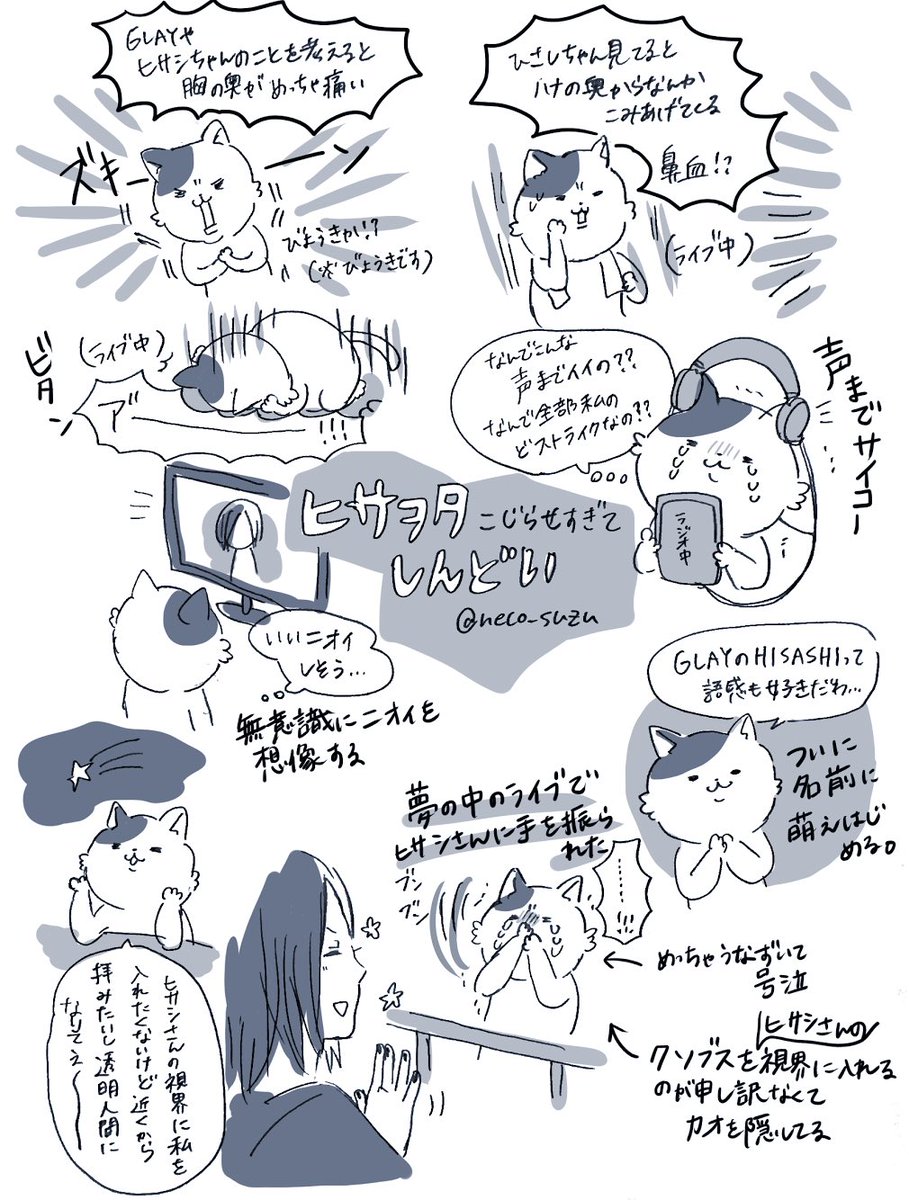 GLAYや
ヒサシちゃんのことを考えると
胸の奥がめっちゃ痛い
ズキーーン
びょうきか!?
(※びょうきです)
ひさしちゃん見てると
ハナの奥からなんか
こみあげてくる
鼻血!?
(ライブ中)
ビタン
(ライブ中)
ア゛ーーー
!!!
なんでこんな
声までイイの??
なんで全部私の
どストライクなの??
声までサイコー
ラジオ中
ヒサヲタこじらせすぎて
しんどい
@neco_suzu
いいニオイ
しそう…
無意識にニオイを
想像する
GLAYのHISASHIって
語感も好きだわ…
ついに
名前に
萌えはじ
める。
夢の中のライブで
ヒサシさんに手を振ら
れた
ブンブン
………!!!
めっちゃうなずいて
号泣
ヒサシさんの
クソブスを視界に入れる
のが申し訳なくて
カオを隠してる
ヒサシさんの視界に私を
入れたくないけど近くから
拝みたいし透明人間に
なりてぇ〜